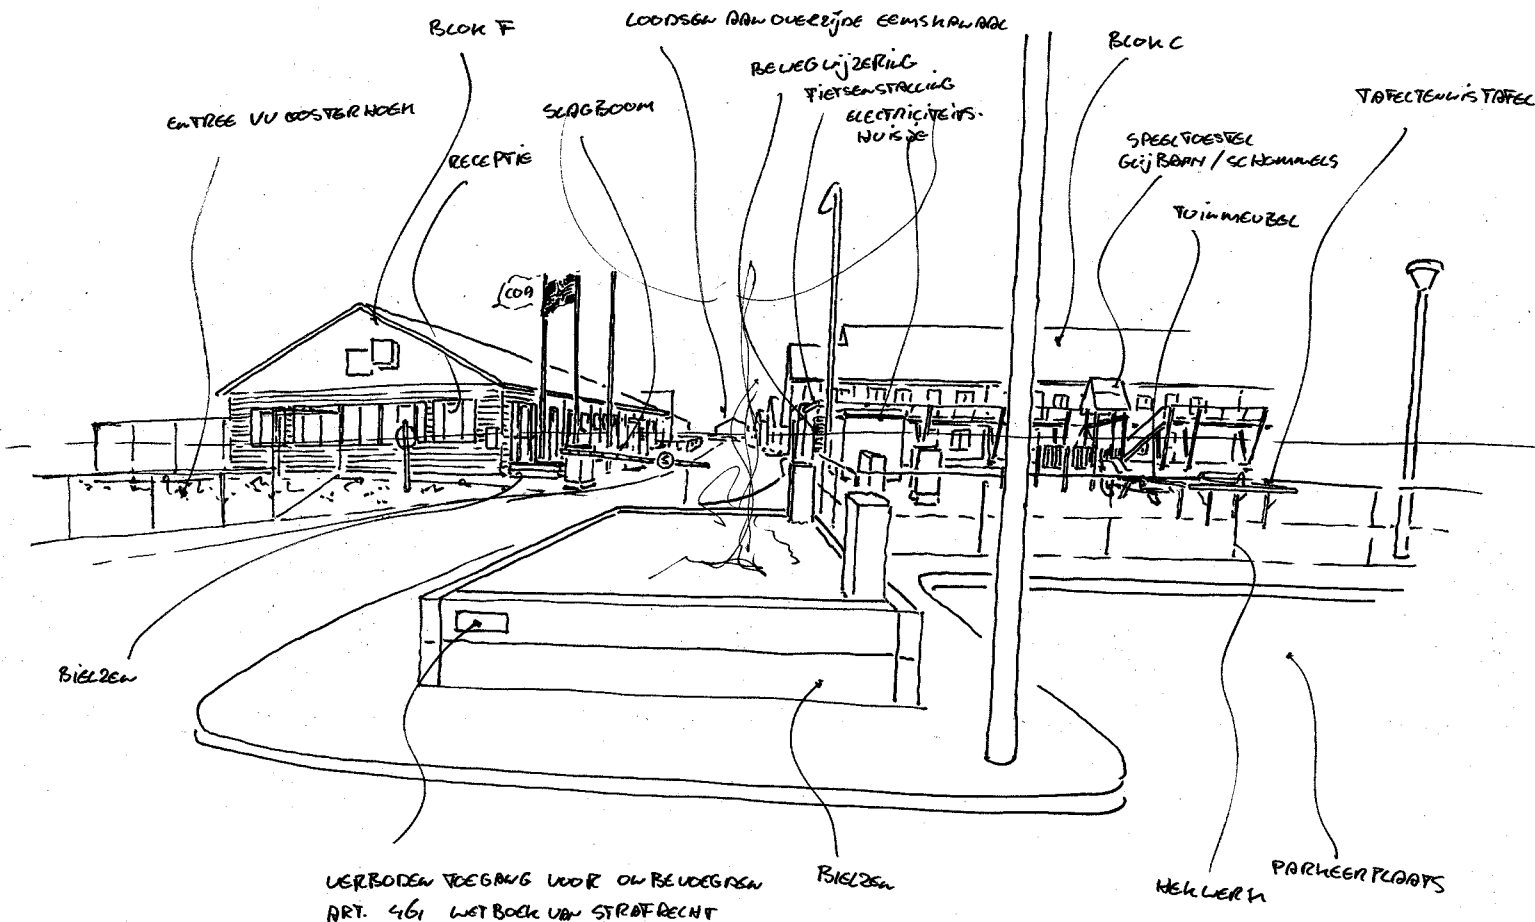 BLOK F
LOODSEN AAN OVERZIJDE EEMSKANAAL
BLOK C
BEWEGWIJZERING
FIETSENSTALLING
ELECTRICITEITS-
HUISJE
TAFELTENNISTAFEL
ENTREE VV OOSTERHOEK
SLAGBOOM
RECEPTIE
SPEELTOESTEL
GLIJBAAN / SCHOMMELS
TUINMEUBEL
COA
BIELZEN
VERBODEN TOEGANG VOOR ONBEVOEGDEN
ART. 461 WETBOEK VAN STRAFRECHT
BIELZEN
HEKWERK
PARKEERPLAATS